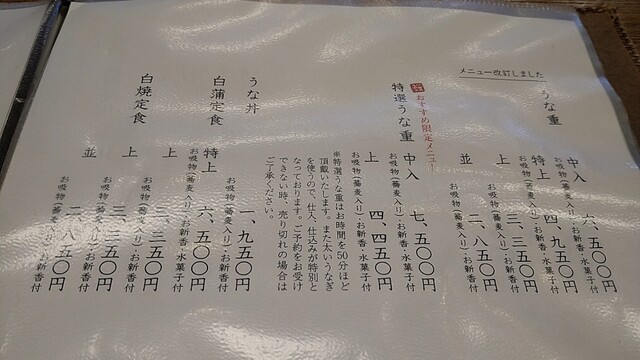 メニュー改訂しました
うな重
中入 六、五〇〇円
お吸物(蕎麦入り)・お新香・水菓子付
特上 四、九五〇円
お吸物(蕎麦入り)・お新香・水菓子付
上 三、三五〇円
お吸物(蕎麦入り)・お新香付
並 二、八五〇円
お吸物(蕎麦入り)・お新香付
おすすめ限定メニュー
特選うな重
中入 七、五〇〇円
お吸物(蕎麦入り)・お新香・水菓子付
上 四、四五〇円
お吸物(蕎麦入り)・お新香・水菓子付
※特選うな重はお時間を50分ほど
頂戴いたします。また太いうなぎ
を使うので、仕入、仕込みが特別と
なっております。ご予約をお受け
できない時、売り切れの場合は
ご了承ください。
うな丼
一、九五〇円
お吸物(蕎麦入り)・お新香付
白蒲定食
特上 六、五〇〇円
お吸物(蕎麦入り)・お新香・水菓子付
上 三、三五〇円
お吸物(蕎麦入り)・お新香付
白焼定食
上 三、三五〇円
お吸物(蕎麦入り)・お新香付
並 五〇円
お吸物(蕎麦 お新香付